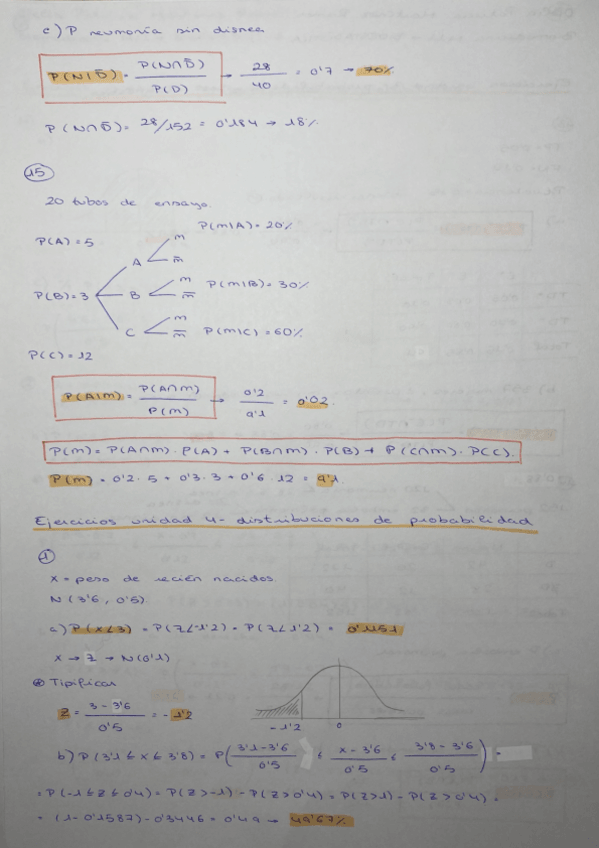 c) P neumonía sin disnea
P(N|D̄) = P(N∩D̄) / P(D) → 28 / 40 = 0'7 → 70%
P(N∩D̄) = 28/152 = 0'184 → 18%
15
20 tubos de ensayo.
P(m|A) = 20%
P(A) = 5
m
A
m̄
m
P(B) = 3 B P(m|B) = 30%
m̄
m
C P(m|C) = 60%
m̄
P(C) = 12
P(A|m) = P(A∩m) / P(m) → 0'2 / 9'1 = 0'02.
P(m) = P(A∩m) · P(A) + P(B∩m) · P(B) + P(C∩m) · P(C).
P(m) = 0'2 · 5 + 0'3 · 3 + 0'6 · 12 = 9'1
Ejercicios unidad 4 - distribuciones de probabilidad
1
x = peso de recién nacidos.
N(3'6, 0'5)
a) P(x<3) = P(Z<-1'2) = P(Z<1'2) = 0'1151
x → Z → N(0'1)
Tipificar
Z = 3 - 3'6 / 0'5 = -1'2
-1'2 0
b) P(3'1 ≤ x ≤ 3'8) = P( 3'1-3'6 / 0'5 ≤ x - 3'6 / 0'5 ≤ 3'8 - 3'6 / 0'5 ) =
= P(-1 ≤ Z ≤ 0'4) = P(Z>-1) - P(Z>0'4) = P(Z>1) - P(Z>0'4) =
= (1-0'1587) - 0'3446 = 0'49 → 49'67%